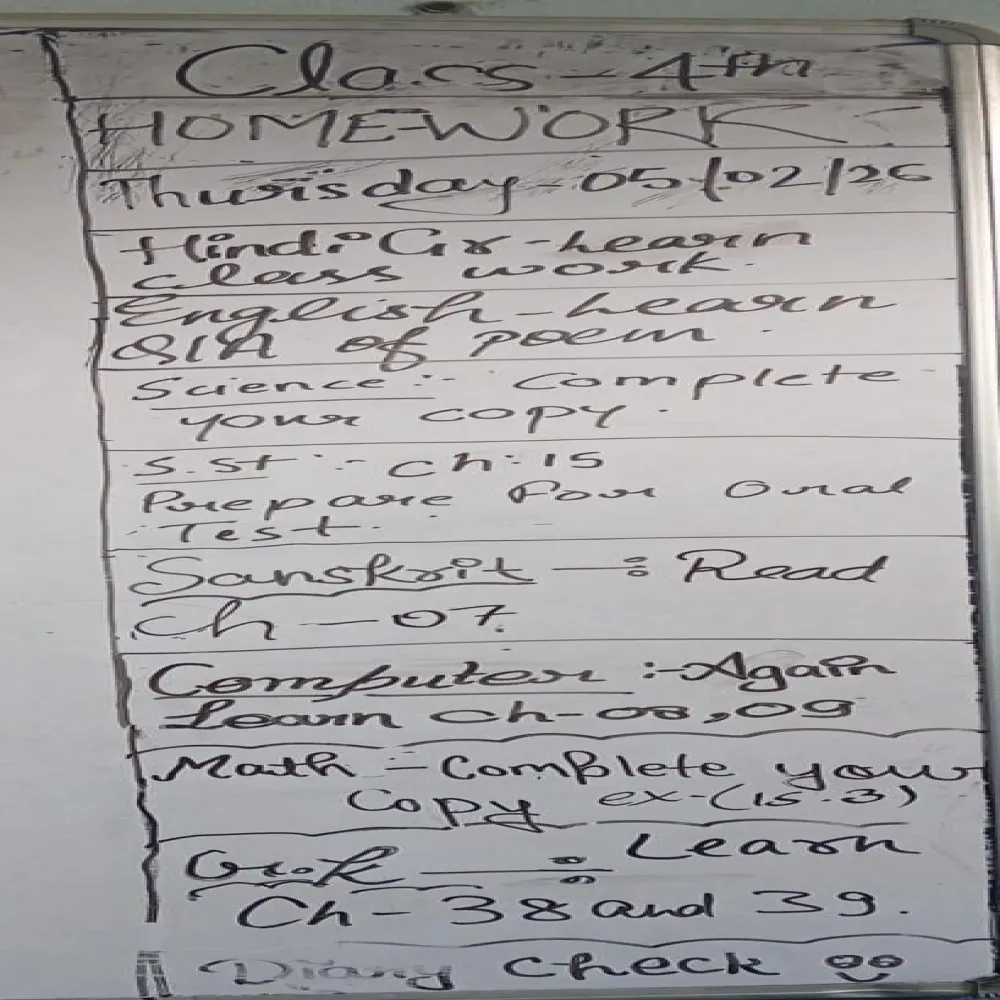 Class - 4th
HOME-WORK
Thursday - 05/02/26
Hindi Gr - Learn
class work.
English - Learn
Q/A of poem.
Science :- Complete
your copy.
S.St :- Ch:15
Prepare for Oral
Test.
Sanskrit — : Read
Ch — 07.
Computer :- Again
Learn Ch-08,09
Math :- Complete your
Copy ex-(15.3)
G.K — : Learn
Ch - 38 and 39.
Diary Check